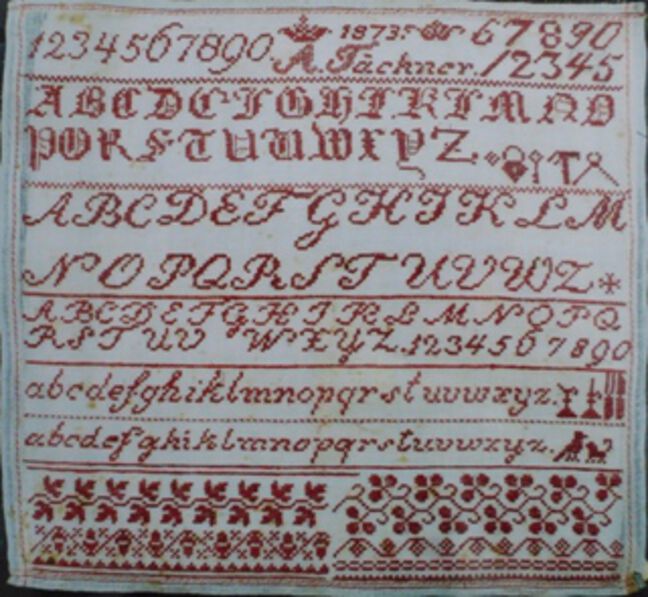 1234567890 1873. 67890
A. 12345
ABCDEFGHIKLMNO
PQRSTUVWXYZ.
ABCDEFGHIKLM
NOPQRSTUVWZ
ABCDEFGHIKLMNOPQ
RSTUVWXYZ.1234567890
abcdefghiklmnopqrstuvwxyz.
abcdefghiklmnopqrstuvwxyz.